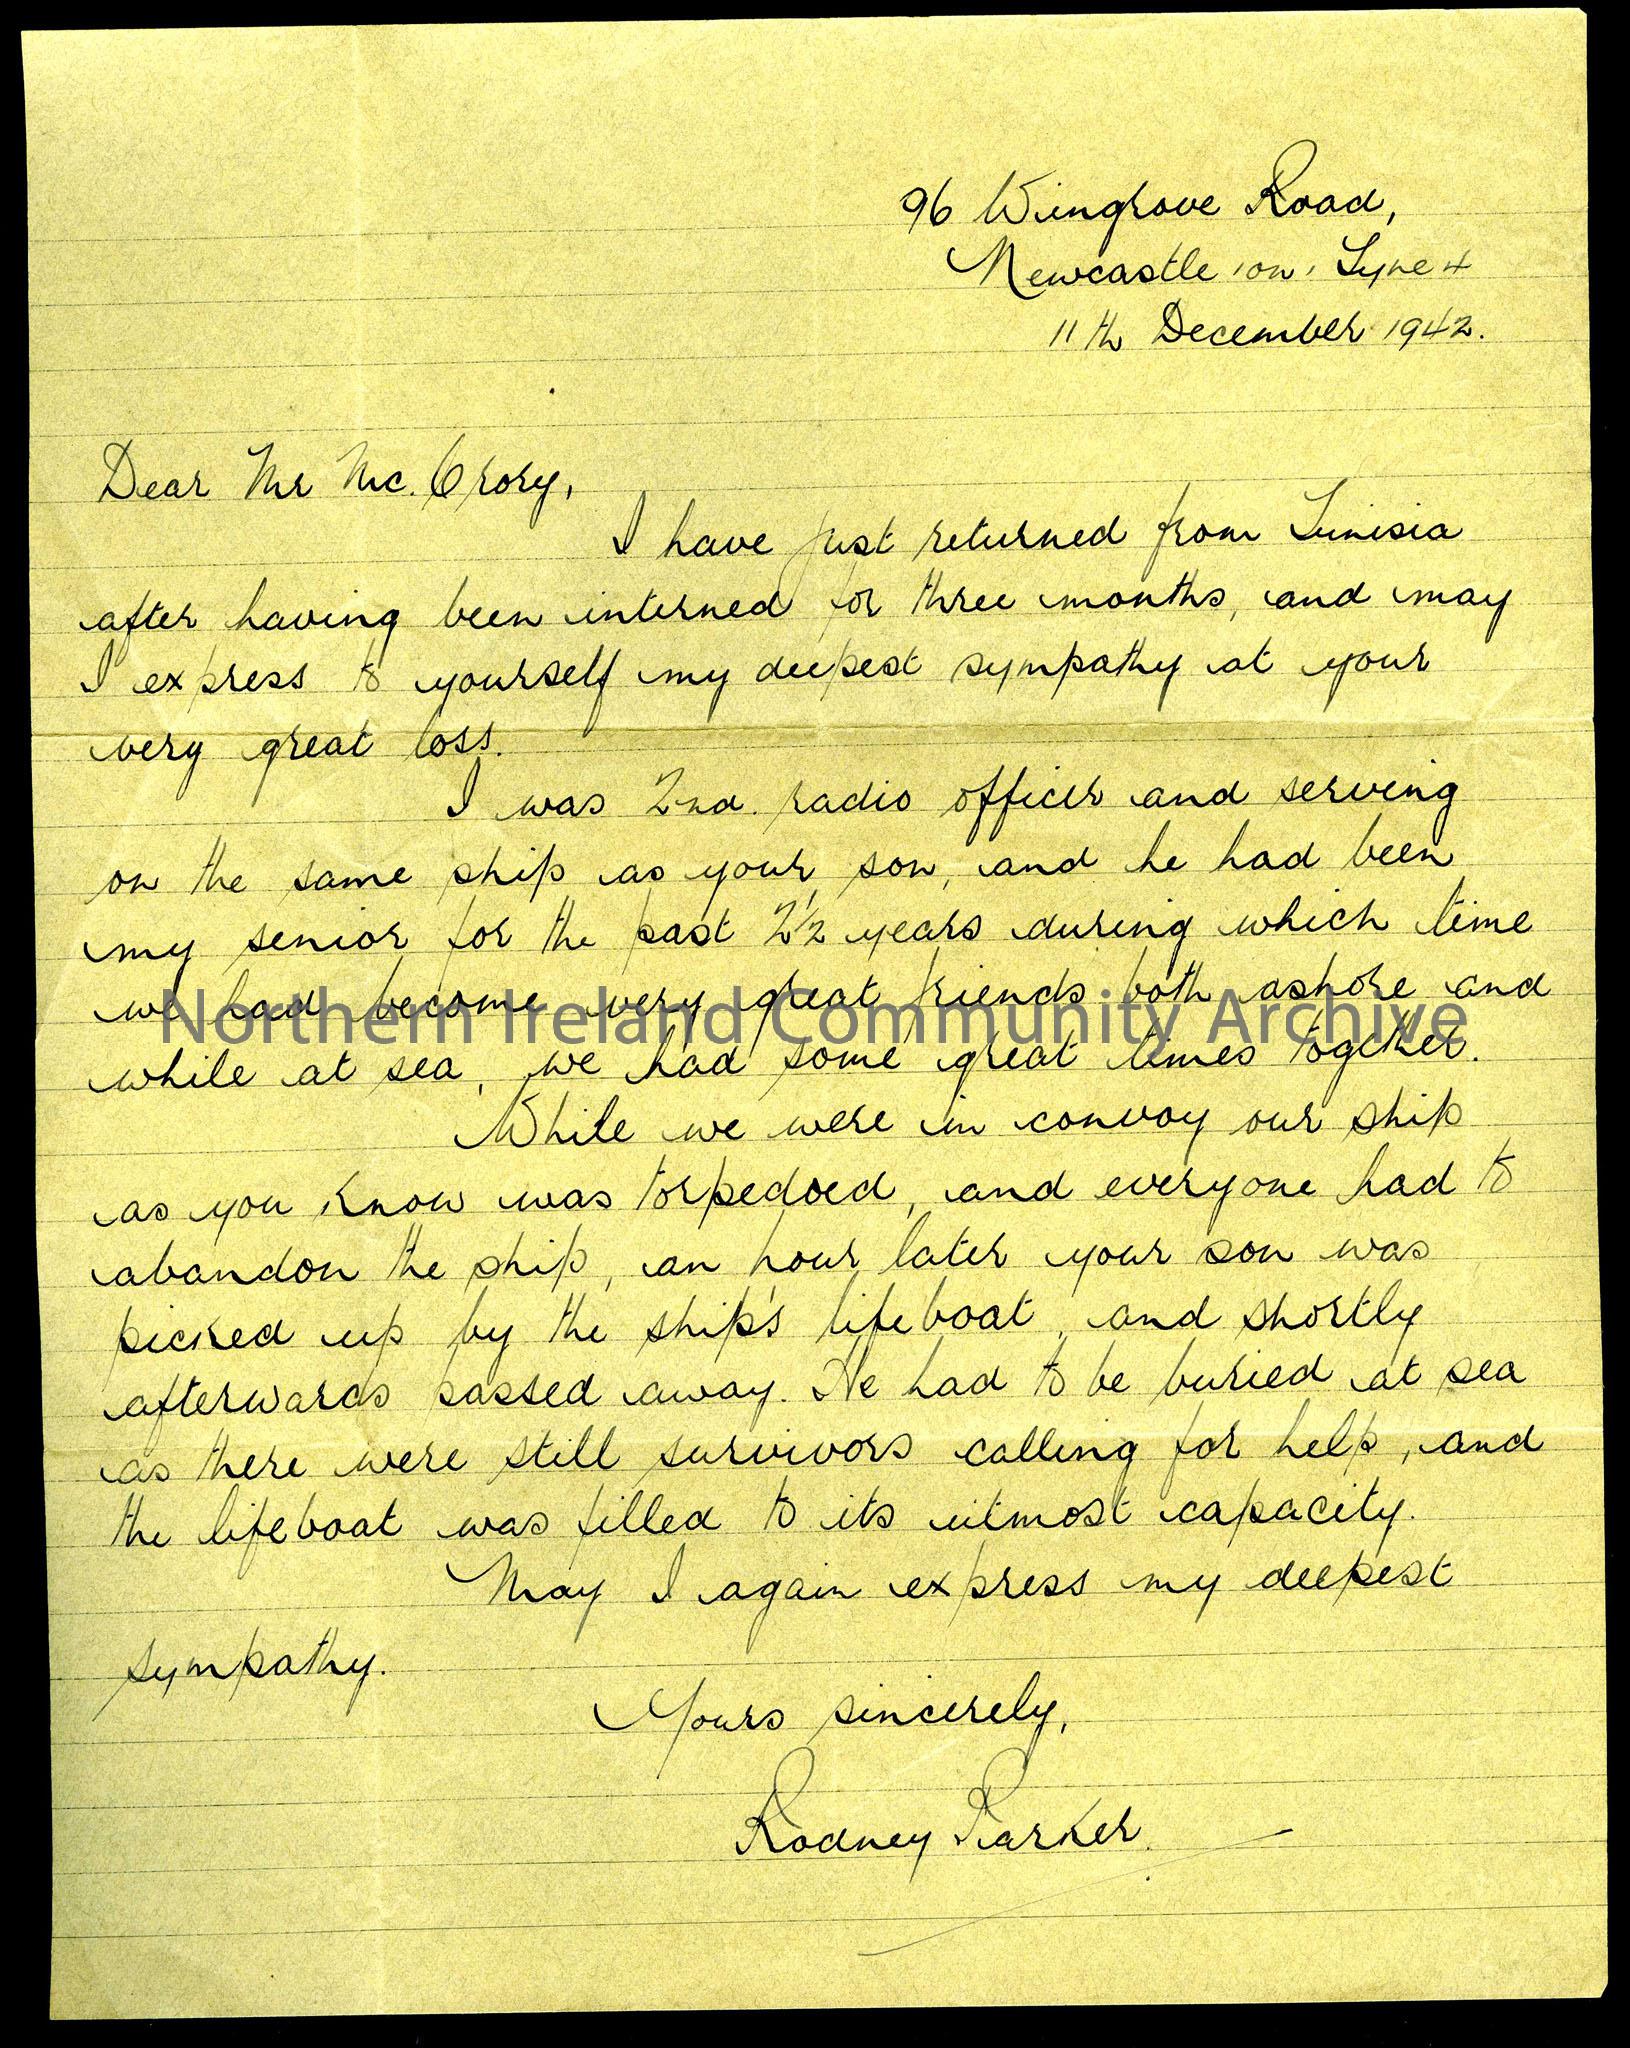 96 Wingrove Road,
Newcastle on Tyne 4
11th December 1942.
Dear Mr Mc. Crory,
I have just returned from Tunisia
after having been interned for three months, and may
I express to yourself my deepest sympathy at your
very great loss.
I was 2nd. radio officer and serving
on the same ship as your son, and he had been
my senior for the past 2½ years during which time
we had become very great friends both ashore and
Northern Ireland Community Archive
while at sea, we had some great times together.
While we were in convoy our ship
as you know was torpedoed, and everyone had to
abandon the ship, an hour later your son was
picked up by the ship's lifeboat, and shortly
afterwards passed away. He had to be buried at sea
as there were still survivors calling for help, and
the lifeboat was filled to its utmost capacity.
May I again express my deepest
sympathy.
Yours sincerely,
Rodney Parker.